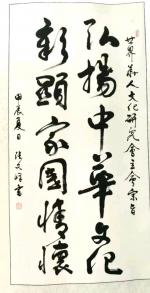 世界人文化研究會會宗旨
弘揚中華文化
彰顯家國情懷
甲辰夏日 文書